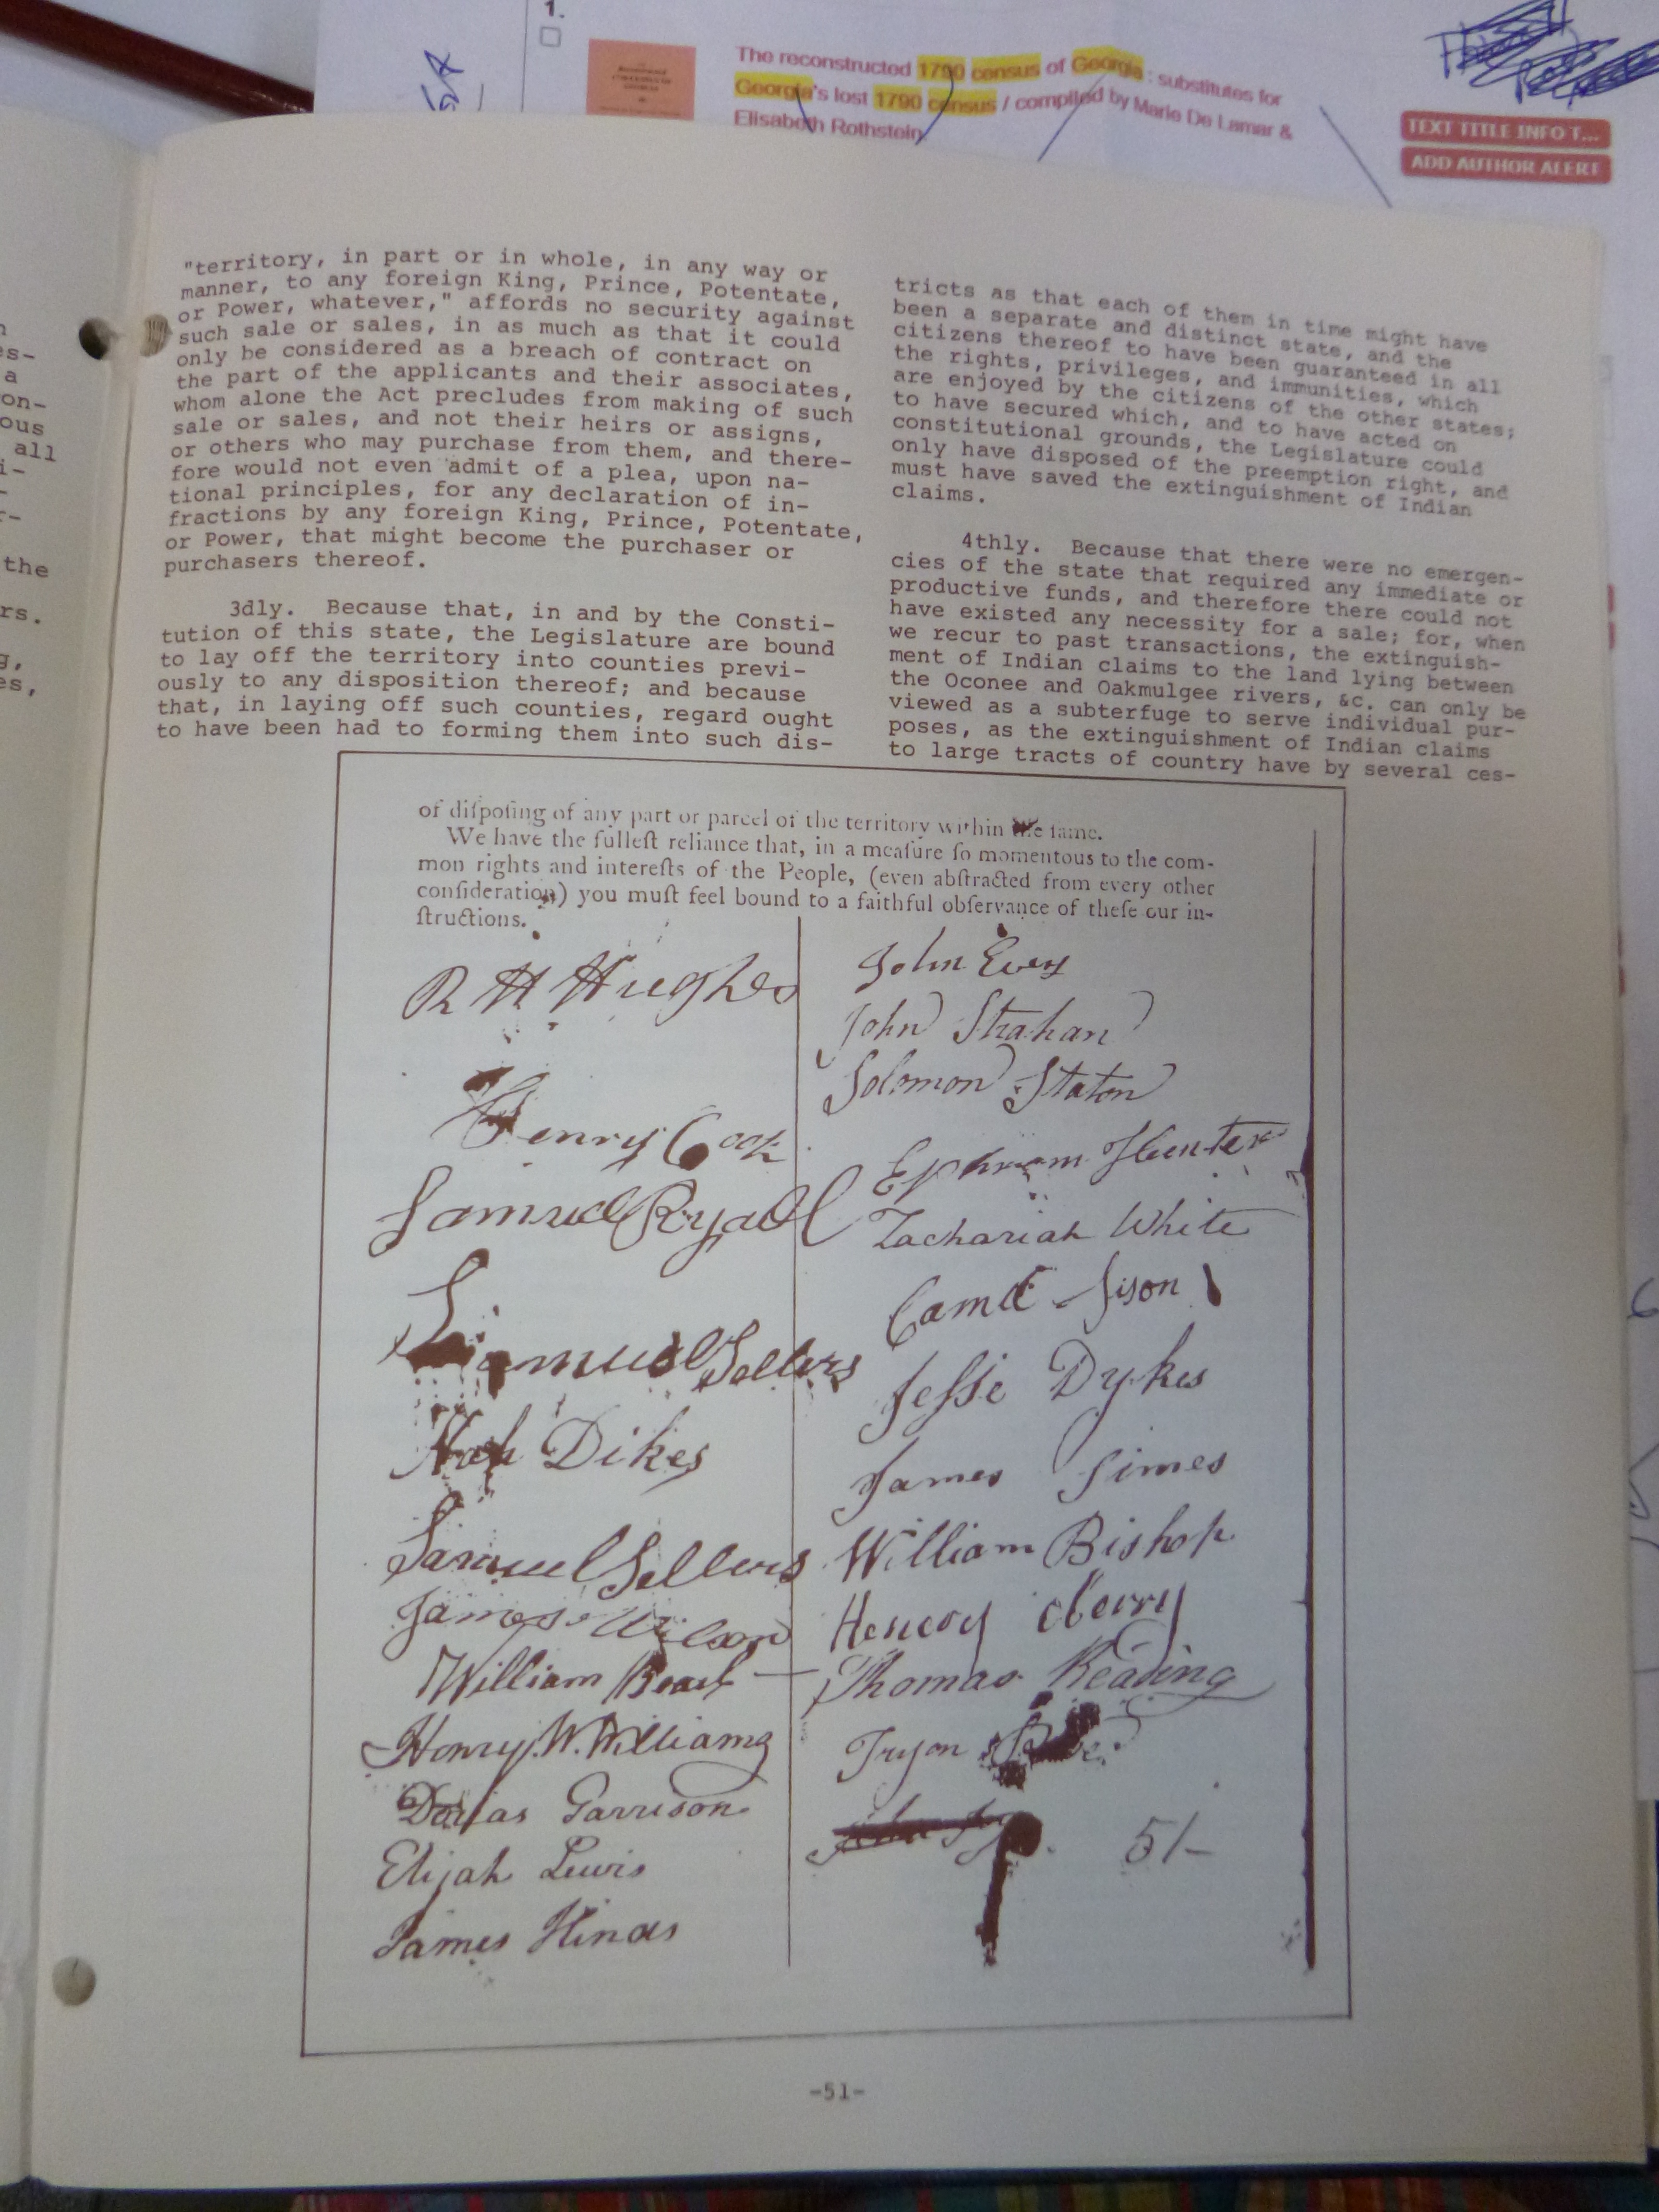 1.
The reconstructed 1790 census of Georgia : substitutes for
Georgia's lost 1790 census / compiled by Marie De Lamar &
Elisabeth Rothstein
TEXT TITLE INFO T...
ADD AUTHOR ALERT
es-
a
on-
ous
all
i-
-
r-
the
rs.
g,
es,
"territory, in part or in whole, in any way or
manner, to any foreign King, Prince, Potentate,
or Power, whatever," affords no security against
such sale or sales, in as much as that it could
only be considered as a breach of contract on
the part of the applicants and their associates,
whom alone the Act precludes from making of such
sale or sales, and not their heirs or assigns,
or others who may purchase from them, and there-
fore would not even admit of a plea, upon na-
tional principles, for any declaration of in-
fractions by any foreign King, Prince, Potentate,
or Power, that might become the purchaser or
purchasers thereof.
3dly. Because that, in and by the Consti-
tution of this state, the Legislature are bound
to lay off the territory into counties previ-
ously to any disposition thereof; and because
that, in laying off such counties, regard ought
to have been had to forming them into such dis-
tricts as that each of them in time might have
been a separate and distinct state, and the
citizens thereof to have been guaranteed in all
the rights, privileges, and immunities, which
are enjoyed by the citizens of the other states;
to have secured which, and to have acted on
constitutional grounds, the Legislature could
only have disposed of the preemption right, and
must have saved the extinguishment of Indian
claims.
4thly. Because that there were no emergen-
cies of the state that required any immediate or
productive funds, and therefore there could not
have existed any necessity for a sale; for, when
we recur to past transactions, the extinguish-
ment of Indian claims to the land lying between
the Oconee and Oakmulgee rivers, &c. can only be
viewed as a subterfuge to serve individual pur-
poses, as the extinguishment of Indian claims
to large tracts of country have by several ces-
of diſpoſing of any part or parcel of the territory within the ſame.
We have the fulleſt reliance that, in a meaſure ſo momentous to the com-
mon rights and intereſts of the People, (even abſtracted from every other
conſideration,) you muſt feel bound to a faithful obſervance of theſe our in-
ſtructions.
R H Hughes
Henry Cook
Samuel Ryall
S.
Samuel Sellers
Dikes
Samuel Sellers
James Wilson
William
Henry. W. Williams
Garrison
Elijah Lewis
James Hinds
John Every
John Strahan
Solomon Staton
Ephraim Hunter
Zachariah White
Sison
Jesse Dykes
James Simes
William Bishop
Henery
Thomas Reading
Tryon
John
51-
-51-